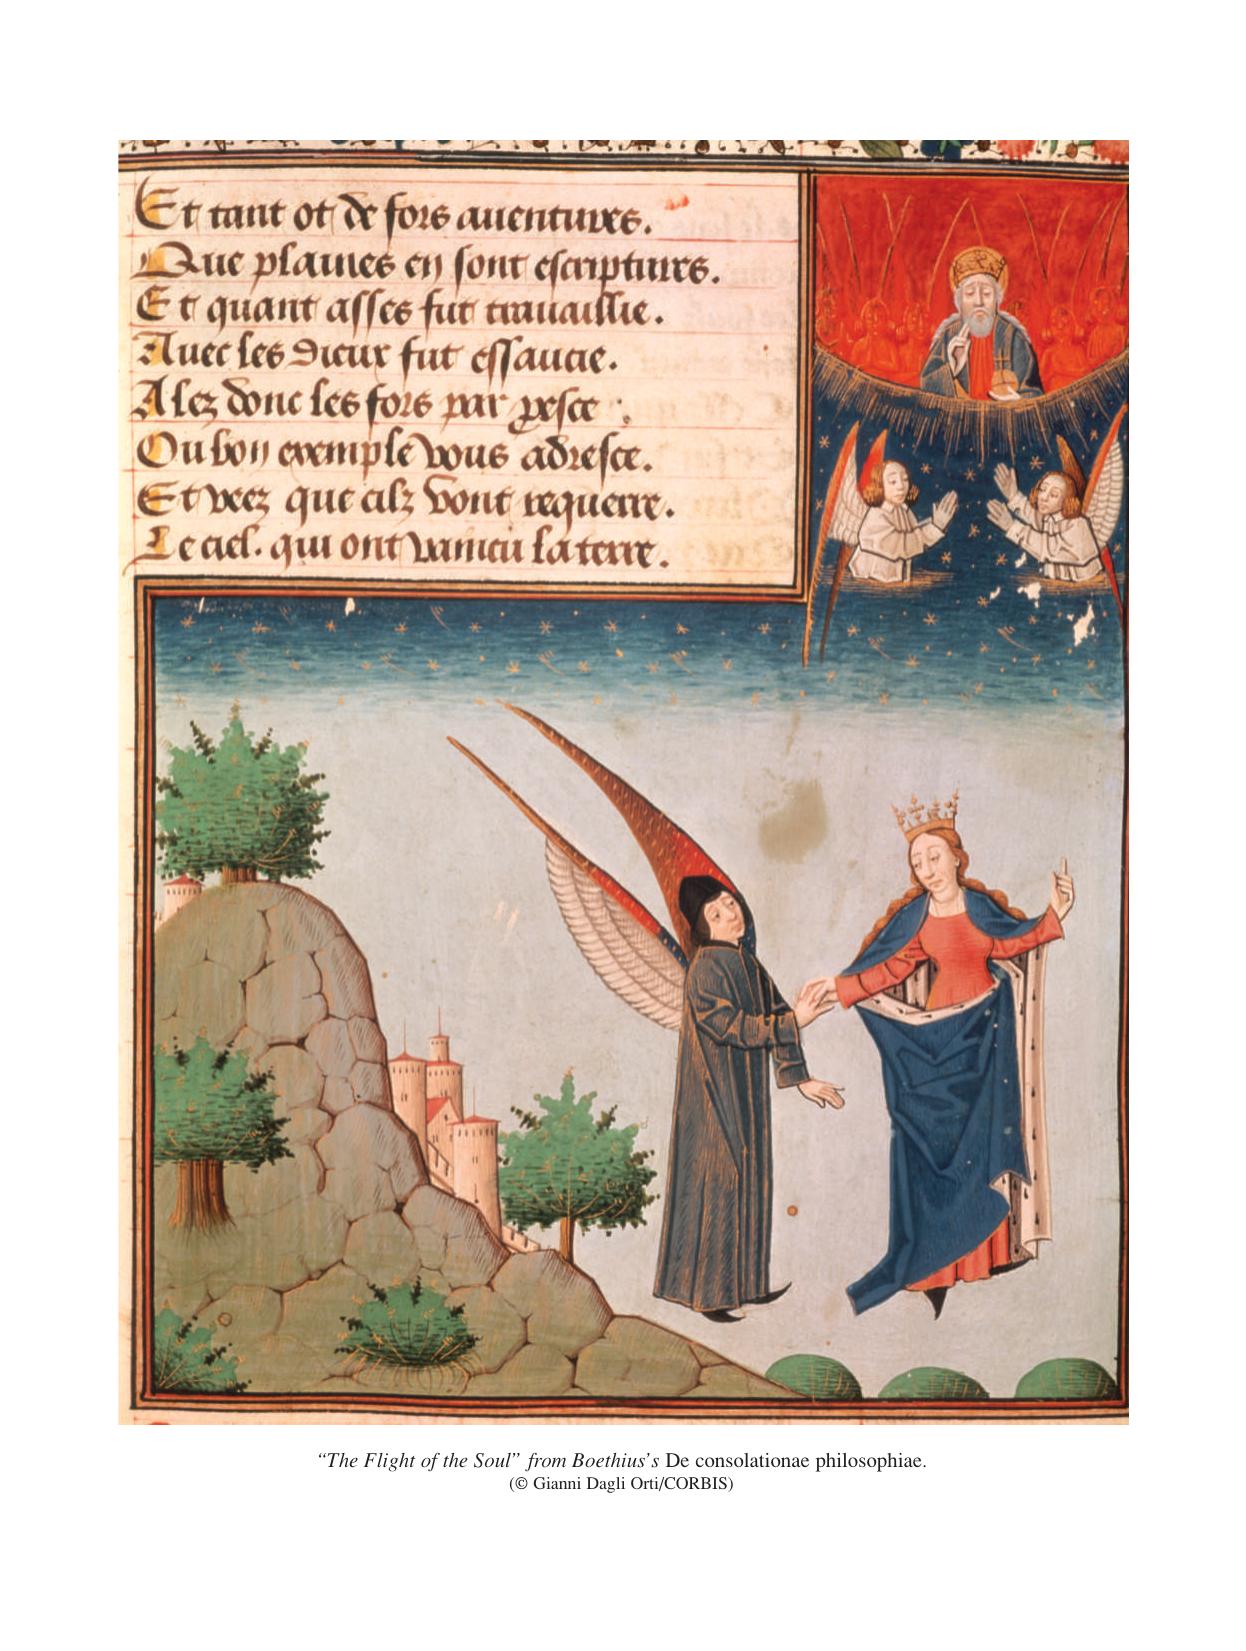 Et tant ot de fors auentures.
Que plaines en sont escriptures.
Et quant asses fut trauaillie.
Auec les dieux fut essaucie.
Alez donc les fors par
Ou bon exemple vous adresce.
Et veez que cilz vont requerre.
Le ciel. qui ont vaincu la terre.
“The Flight of the Soul” from Boethius’s De consolationae philosophiae.
(© Gianni Dagli Orti/CORBIS)